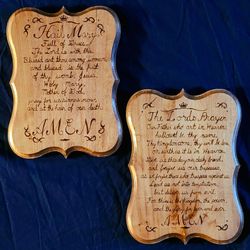 Hail Mary
Full of Grace
The Lord is with thee
Blessed art thou among women
and blessed is the fruit
of thy womb Jesus.
Holy Mary
Mother of God
pray for us sinners now
and at the hour of our death
AMEN
The Lords Prayer
Our Father who art in Heaven
hallowed be thy name
Thy kingdom come, thy will be done
on earth as it is in Heaven
Give us this day our daily bread,
and forgive us our trespasses,
as we forgive those who trespass against us
Lead us not into temptation
but deliver us from evil
For thine is the kingdom, the power,
and the glory for ever and ever
AMEN